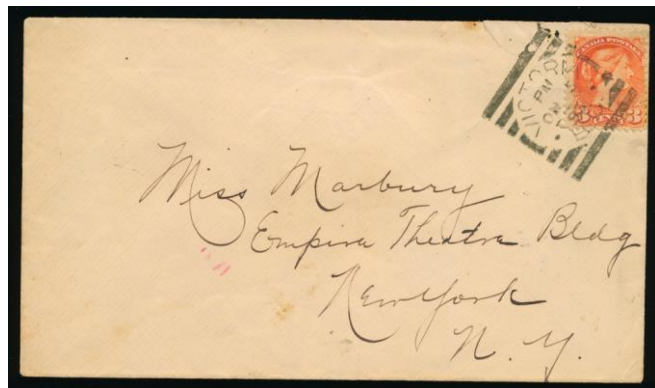 VICTORIA
PM
3 CENTS 3
Miss Marbury
Empire Theatre Bldg
New York
N. Y.